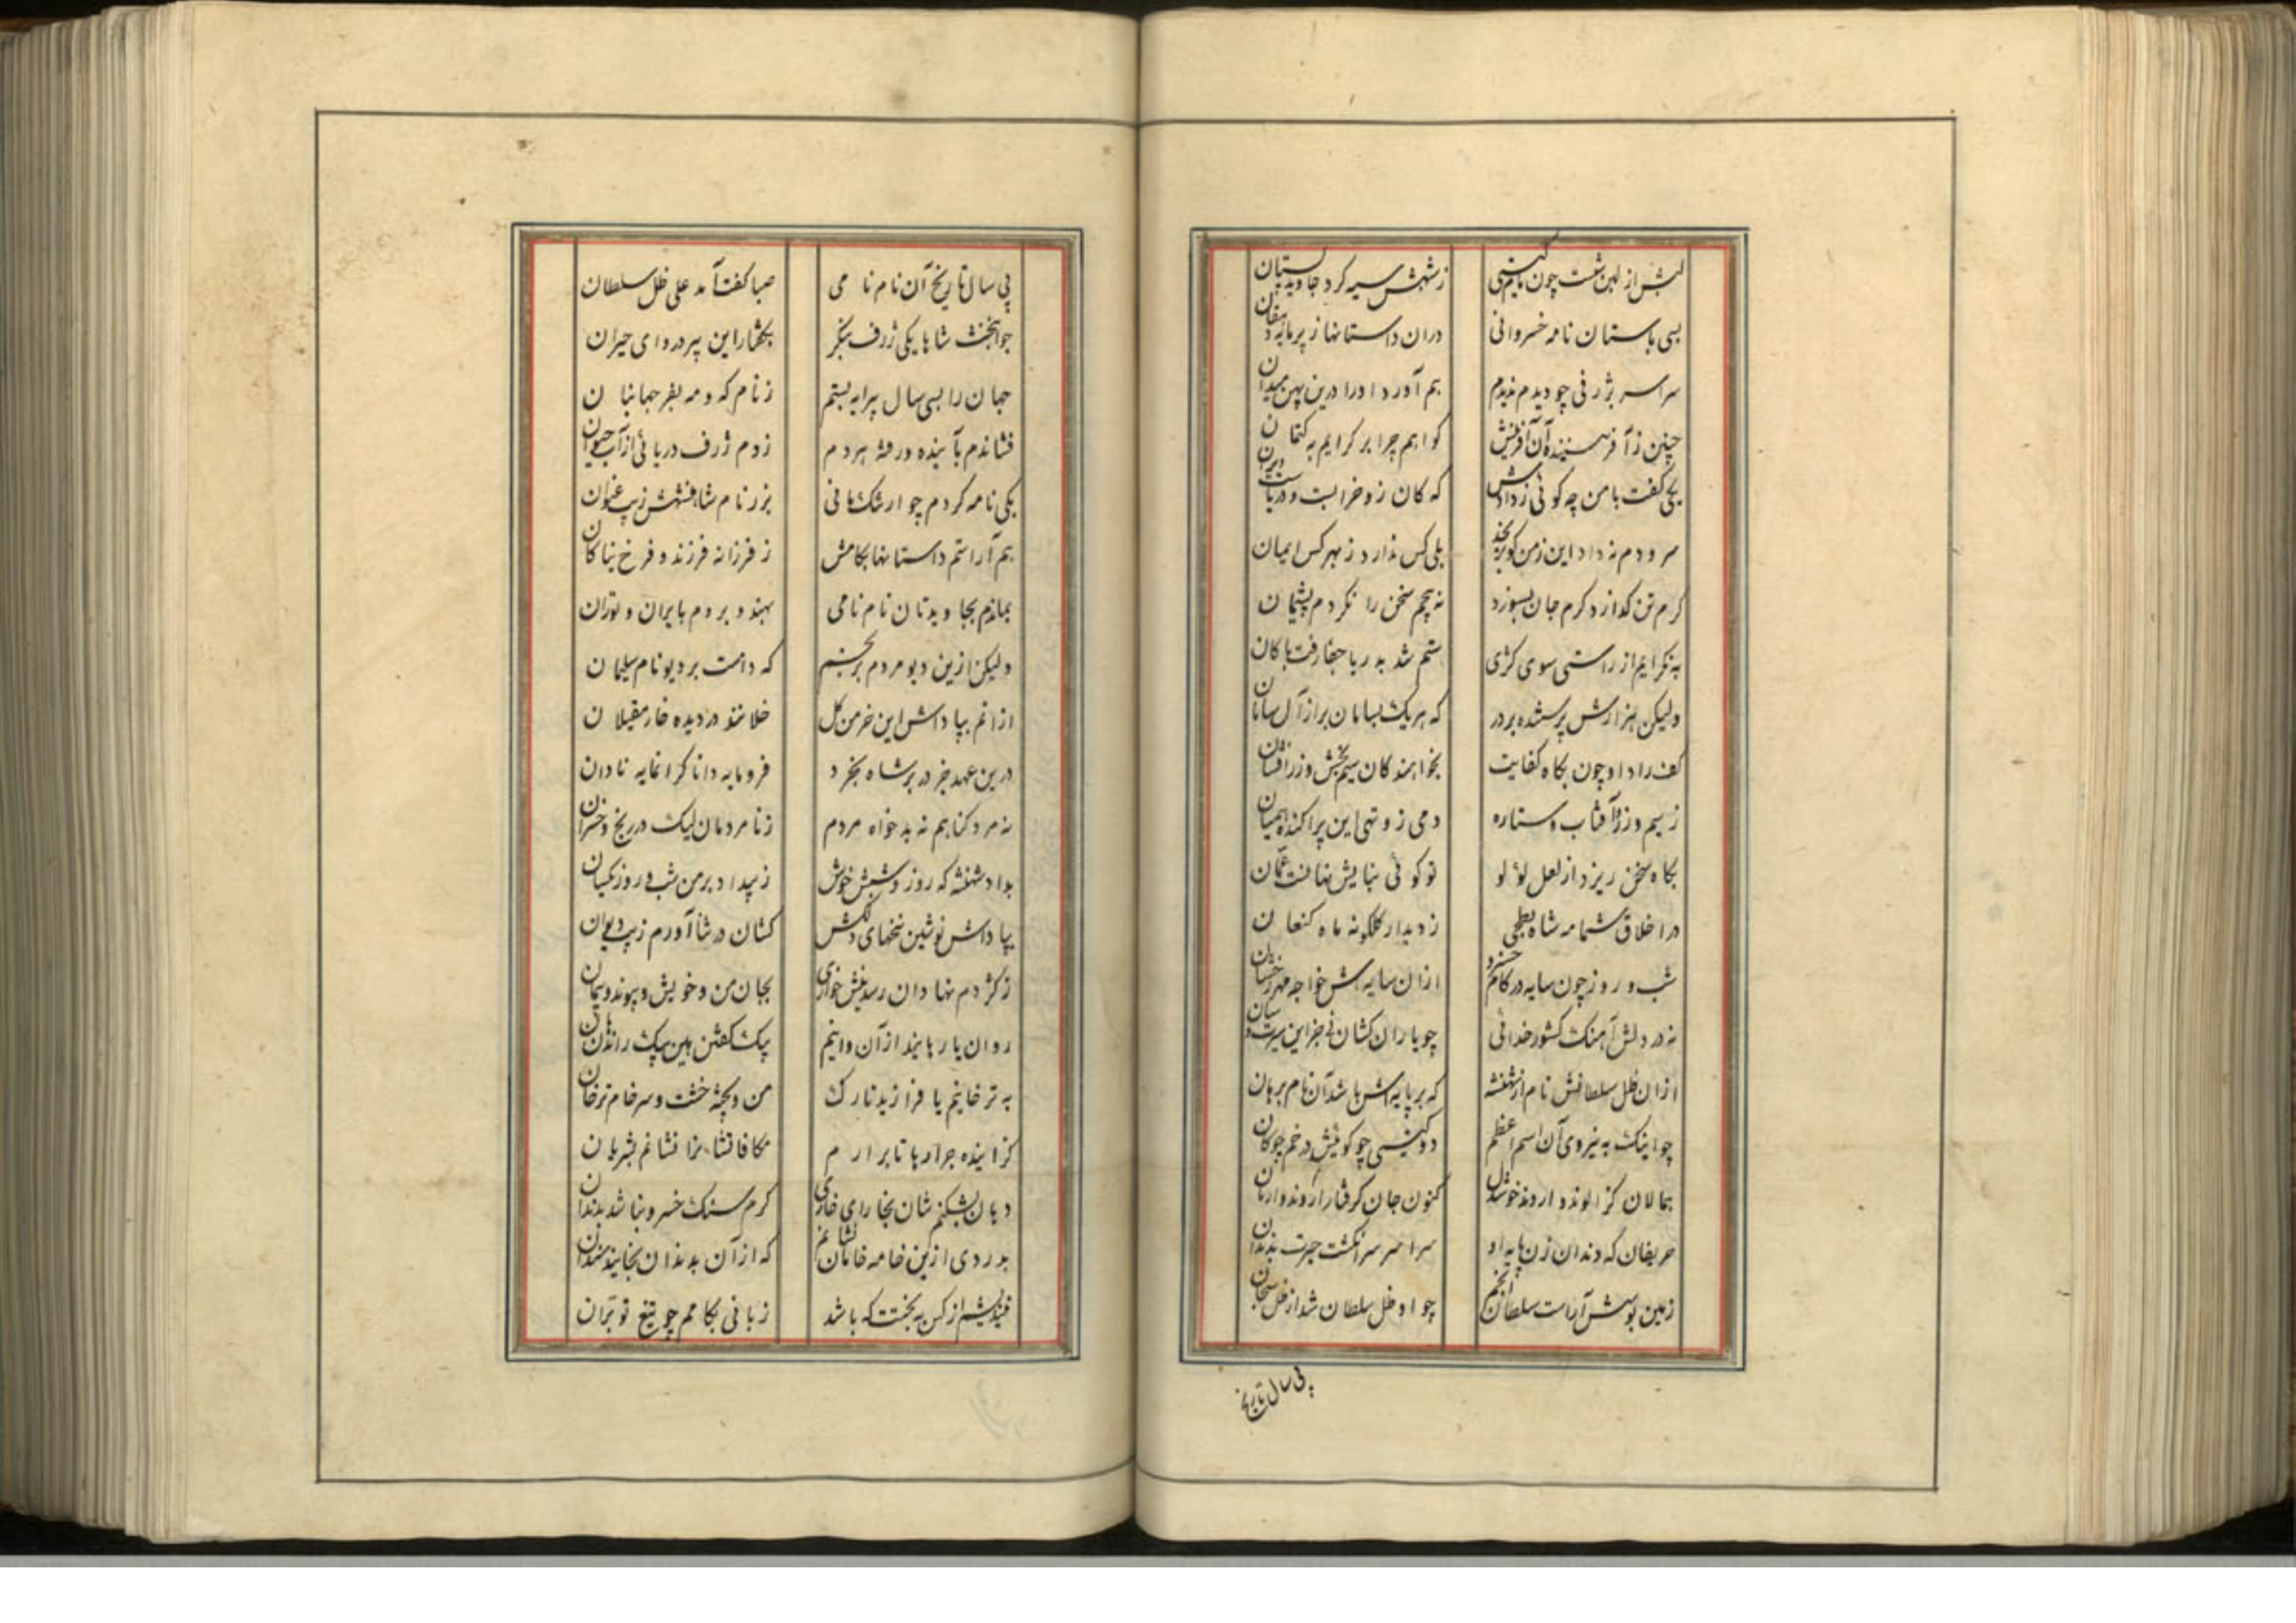 زشهش سیه کرد جاوید بستان
بسی باستان نامه خسروانی دران داستانها ز پرمایه دهقان
سراسر بژرفی چو دیدم ندیدم هم آورد او را درین پهن میدان
چنین ز آفریننده آن آفرینش
یکی گفت با من چه گوئی ز دادش که کان زو خرابست و دریاست ویران
سرودم نه داد این زمن بلی کس ندارد ز مهر کس ایمان
گرم تن گدازد گرم جان بسوزد نه پیچم سخن را نگردم پشیمان
نگرایم از راستی سوی کژی ستم شد به دریا جفا رفت با کان
ولیکن هزارش پرستنده بر در که هریک بسامان بر از آل سامان
کف راد او چون بگاه کفایت بخواهند کان سیم بخش و زر افشان
ز سیم و زر آفتاب و ستاره دمی زو تهی این پراکنده همیان
بگاه سخن ریزد از لعل لؤلؤ تو گوئی بنایش نهانست عمان
در اخلاق شمامه شاه بطحی ز دیدار گلگونه ماه کنعان
شب و روز چون سایه در کام خسرو ازان سایه اش خواجه مهر رخشان
نه در دلش آهنگ کشور خدائی چو یاران کشان نی جز این سیرت و سان
ازان ظل سلطانش نام از شهنشه که بر پایه اش باشد آن نام برهان
چو اینک به نیروی آن اسم اعظم دو گیتی چو گویش در خم چوگان
همالان کز الوند و اروند خوشدل کنون جان گرفتار اروند وارمان
حریفان که دندان زن پایه او سراسر سر انگشت حیرت بدندان
زمین بوسش آراست سلطان انجم چو او ظل سلطان شد از ظل سبحان
پی سال تاریخ
پی سال تاریخ آن نام نامی صبا گفت آمد علی ظل سلطان
جوانبخت شاها یکی ژرف بنگر بگفتار این پیر دروای حیران
جهان را بسی سال پیرایه بستم ز نام که و مه بفر جهانبان
فشاندم بآینده و رفته هر دم ز دم ژرف دریائی از آب حیوان
یکی نامه کردم چو ارتنگ مانی بزر نام شاهنشهش زیب عنوان
هم آراستم داستانها بکامش ز فرزانه فرزند و فرخ نیاکان
بماندم بجاوید تان نام نامی بهند و بردم بایران و توران
ولیکن ازین دیو مردم برنجم که دامت بر دیو نام سلیمان
ازانم بپاداش این خرمن گل خلانند در دیده خار مغیلان
درین عهد جز در بر شاه بخرد فرومایه دانا گرانمایه نادان
نه مرد گناهم نه بدخواه مردم ز نامردمان لیک در رنج و خسران
بداد شهنشه که روز و شبش خوش ز بیداد بر من شب و روز یکسان
بپاداش نوشین سخنهای دلکش کشان در ثنا آورم زیب دیوان
ز کژدم نهادان رسد نیش خواری بجان من و خویش و پیوند و پیمان
روان یا رهانید از آن وانیم بیک گفتن هین بیک راندن هان
به ترخانیم یا فرازید تارک من و پخته خشت و سر خام ترخان
گزاینده جراره ها تا برآرم مکافاتشان را نشانم بشریان
دهان بشکنم شان بخارای خاری گرم سنگ خسرو نباشد بدندان
بدردی ازین خامه خامان نشانم که از آن بدندان بخایند سندان
نیندیشم از کس به بختت که باشد زبانی بکامم چو تیغ تو بران